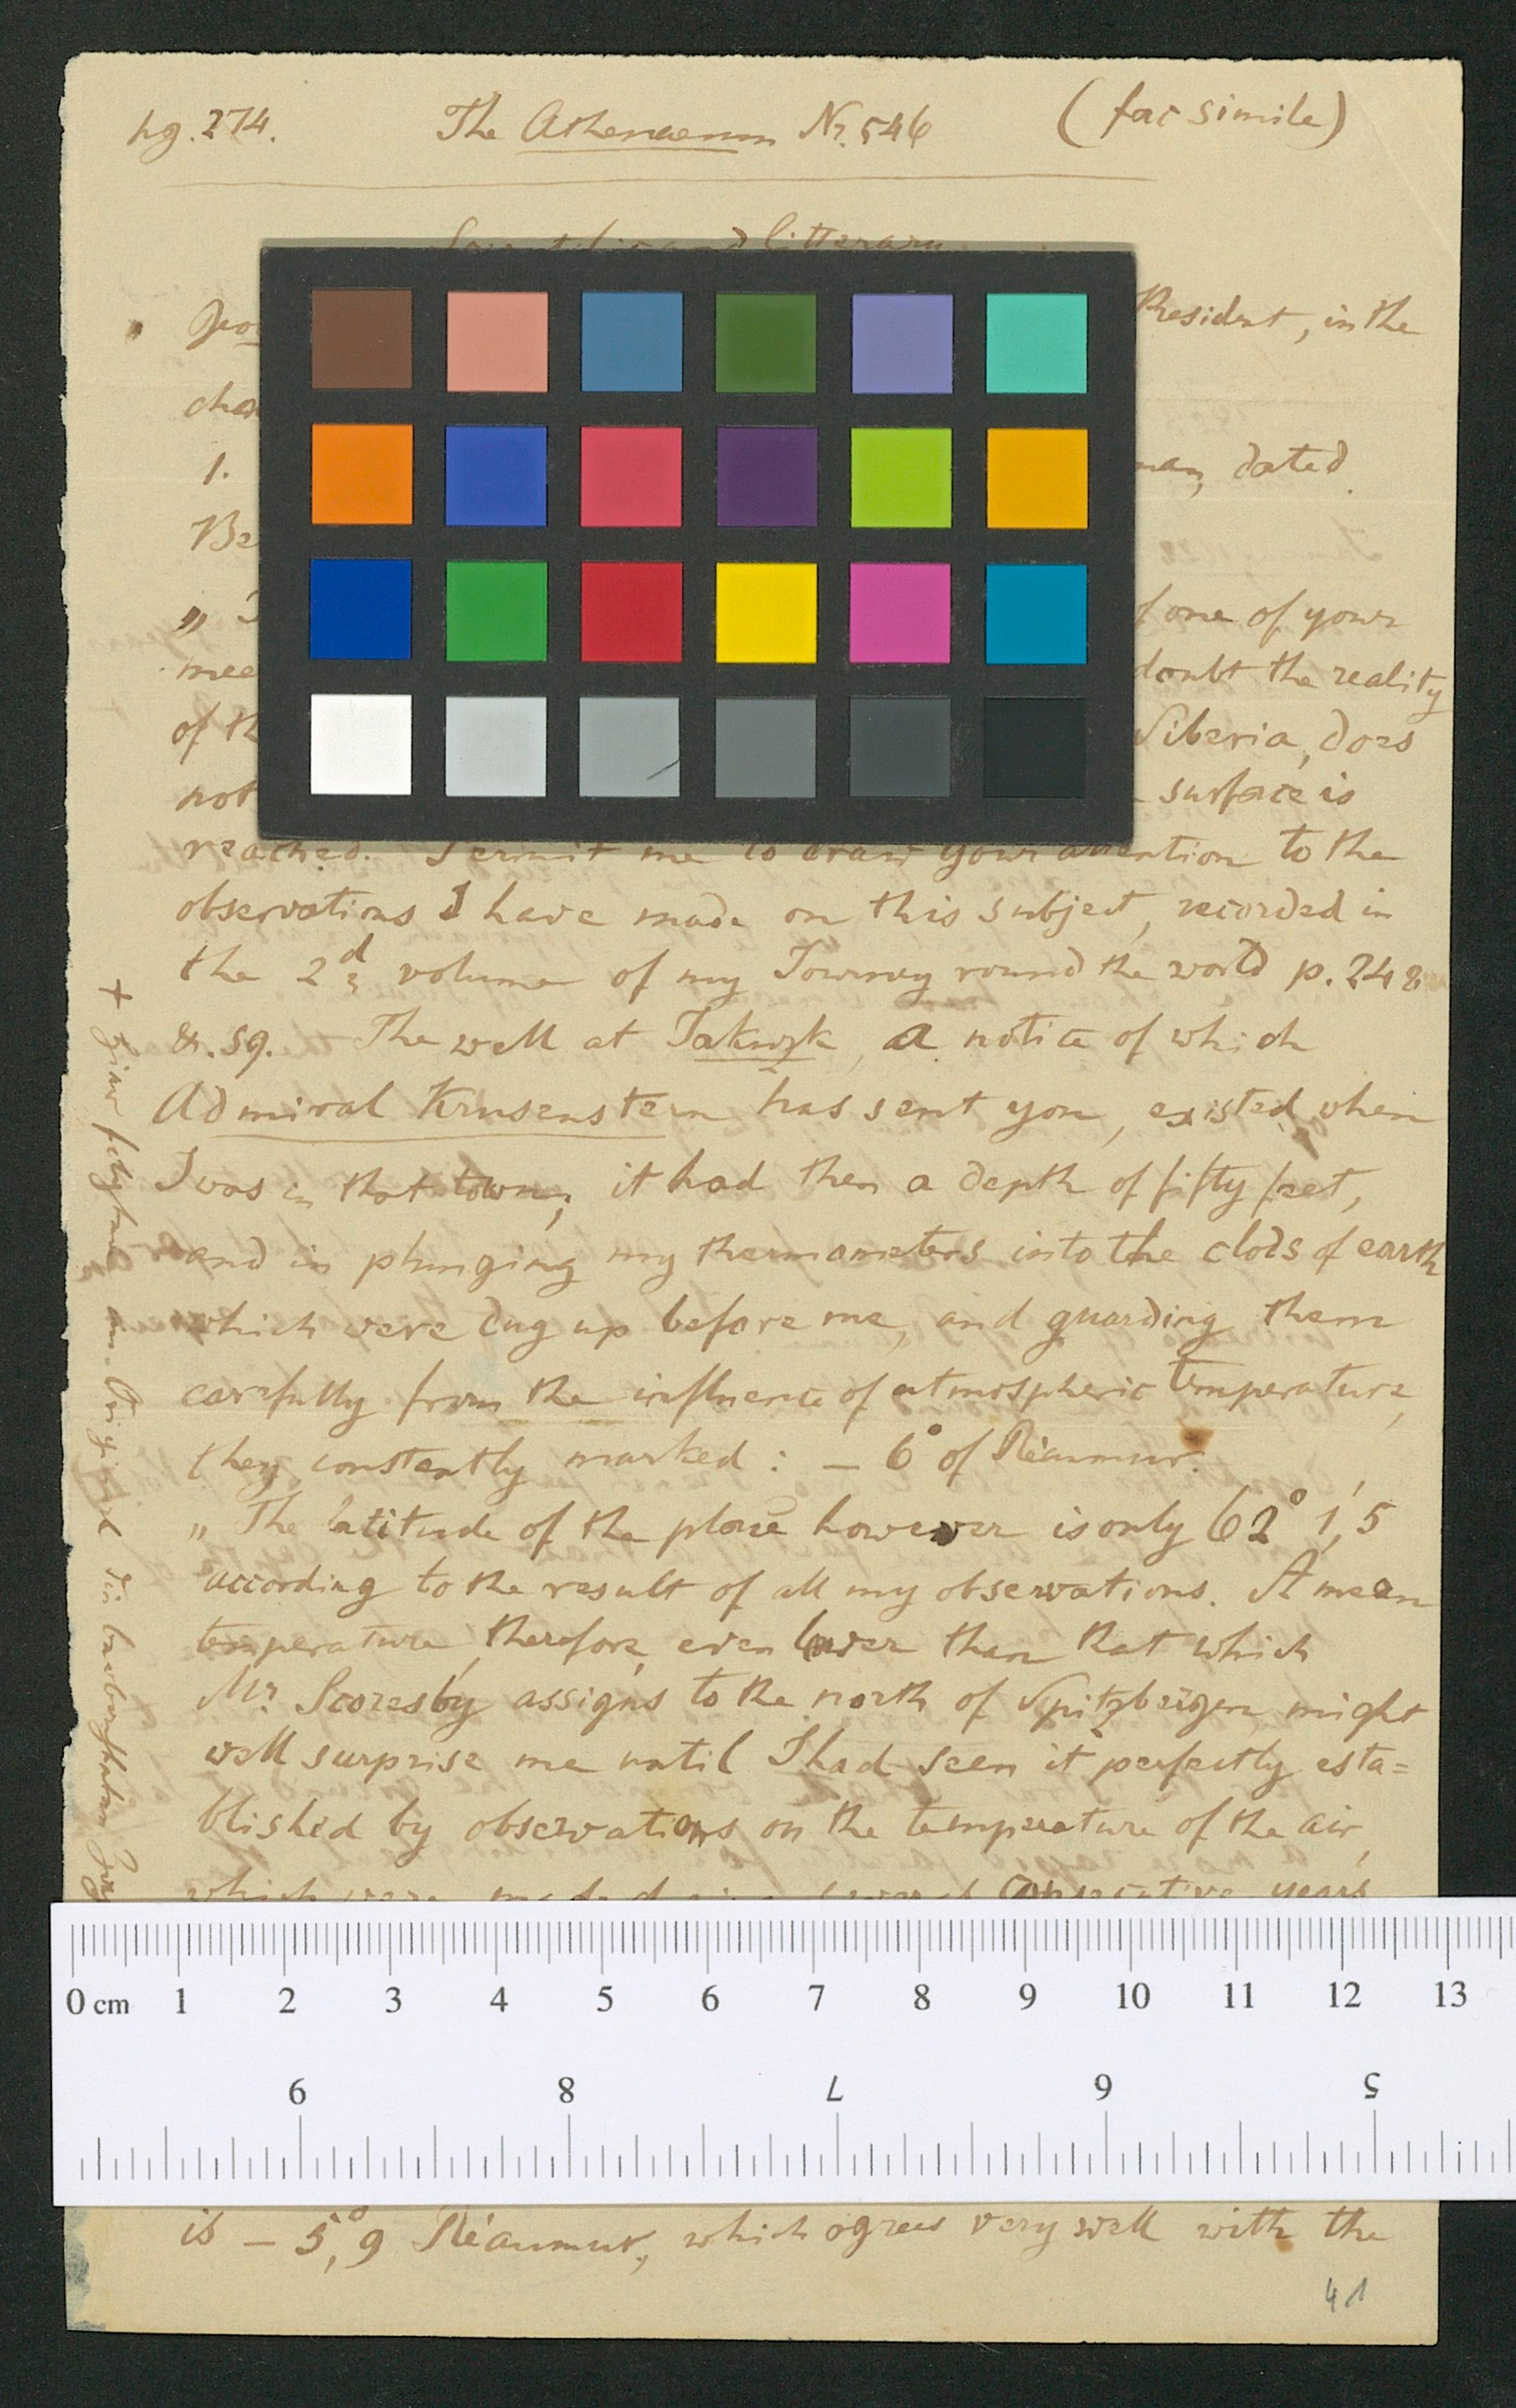 pg. 274. The Athenaeum Nr. 546 (facsimile)
and litterary
President, in the
1. dated
Be
„ of one of your
mee doubt the reality
of th Siberia, does
not surface is
reached. Permit me to draw your attention to the
observations I have made on this subject, recorded in
the 2d volume of my Journey round the world p. 248
&. sq. The well at Jakuzk, a notice of which
Admiral Krusenstern has sent you, existed when
I was in that town; it had then a depth of fifty feet,
and in plunging my thermometers into the clods of earth
which were dug up before me, and guarding them
carefully from the influence of atmospheric temperature,
they constantly marked: – 6° of Réaumur.
„ The latitude of the place however is only 62° 1,'5
according to the result of all my observations. A mean
temperature, therefore, even lower than that which
Mr. Scoresby assigns to the north of Spitzbergen, might
well surprise me until I had seen it perfectly esta=
blished by observations on the temperature of the air,
which were made consecutive years
0 cm 1 2 3 4 5 6 7 8 9 10 11 12 13
9 8 7 6 5
is – 5,°9 Réaumur, which agrees very well with the
41